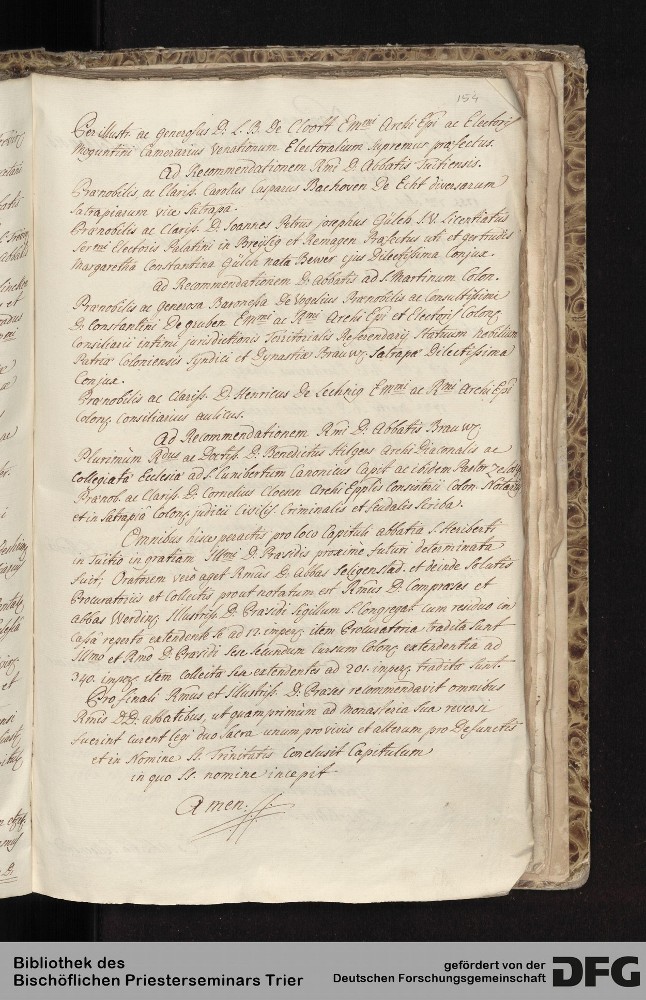 154
Perillustr. ac generosus D. L. B. De Cloott Emmi Archi Epi ac Electoris
Moguntini Camerarius Venationum Electoralium Supremus præfectus.
ad Recommendationem Rmi D. Abbatis Tuitiensis.
Prænobilis ac Clariss. Carolus Casparus Bachoven De Echt diversarum
Satrapiarum vice Satrapa.
Prænobilis ac Clariss. D. Joannes Petrus josephus Gülch I.V. Licentiatus
Sermi Electoris Palatini in Breisig et Remagen Præfectus uti et gertrudis
Margaretha Constantina Gülch nata Bewer ejus Dilectissima Conjux.
ad Recommendationem D. Abbatis ad S. Martinum Colon.
Prænobilis ac generosa Baronessa De Vogelius Prænobilis ac Consultissimi
D. Constantini De gruben Emmi ac Rmi Archi Epi et Electoris Colon.
Consiliarii intimi jurisdictionis Territorialis Referendarij Statuum nobilium
Patriæ Coloniensis Syndici et Dynastiæ Brauw. Satrapæ Dilectissima
Conjux.
Prænobilis ac Clariss. D. Henricus De Lechnig Emmi ac Rmi Archi Epi
Colon. Consiliarius aulicus.
Ad Recommendationem Rmi D. Abbatis Brauw.
Plurimum Rdus ac Doctiss. D. Benedictus Hilgers Archi Diaconalis ac
Collegiatæ Ecclesiæ ad S. Cunibertum Canonicus Capit. ac ibidem Pastor zelosus
Prænob. ac Clariss. D. Cornelius Cloesen Archi Epplis Consistorii Colon. Notarius
et in Satrapia Colon. judicii Civilis Criminalis et feudalis Scriba.
Omnibus hisce peractis pro loco Capituli abbatia S. Heriberti
in Tuitio in gratiam Illmi D. Præsidis proxime futuri determinata
fuit; Oratorem vero aget Rmus D. Abbas Seligenstad. et deinde Solutis
Procuratoriis et Collectis prout notatum est Rmus D. Compræses et
abbas Werdinens. Illustriss. D. Præsidi Sigillum S. Congregat. cum residuo in
Cassa reperto extendente se ad 12. imper. item Procuratoria tradita sunt
Illmo et Rmo D. Præsidi sese secundum Cursum Colon. extendentia ad
340. imper. item Collecta sese extendentes ad 201. imper. tradita sunt.
Pro finali Rmus et Illustriss. D. Præses recommendavit omnibus
Rmis D.D. abbatibus, ut quamprimum ad monasteria sua reversi
fuerint curent legi duo Sacra unum pro vivis et alterum pro Defunctis
et in Nomine SS. Trinitatis Conclusit Capitulum
in quo SS. nomine incepit
Amen.
Bibliothek des
Bischöflichen Priesterseminars Trier
gefördert von der
Deutschen Forschungsgemeinschaft
DFG